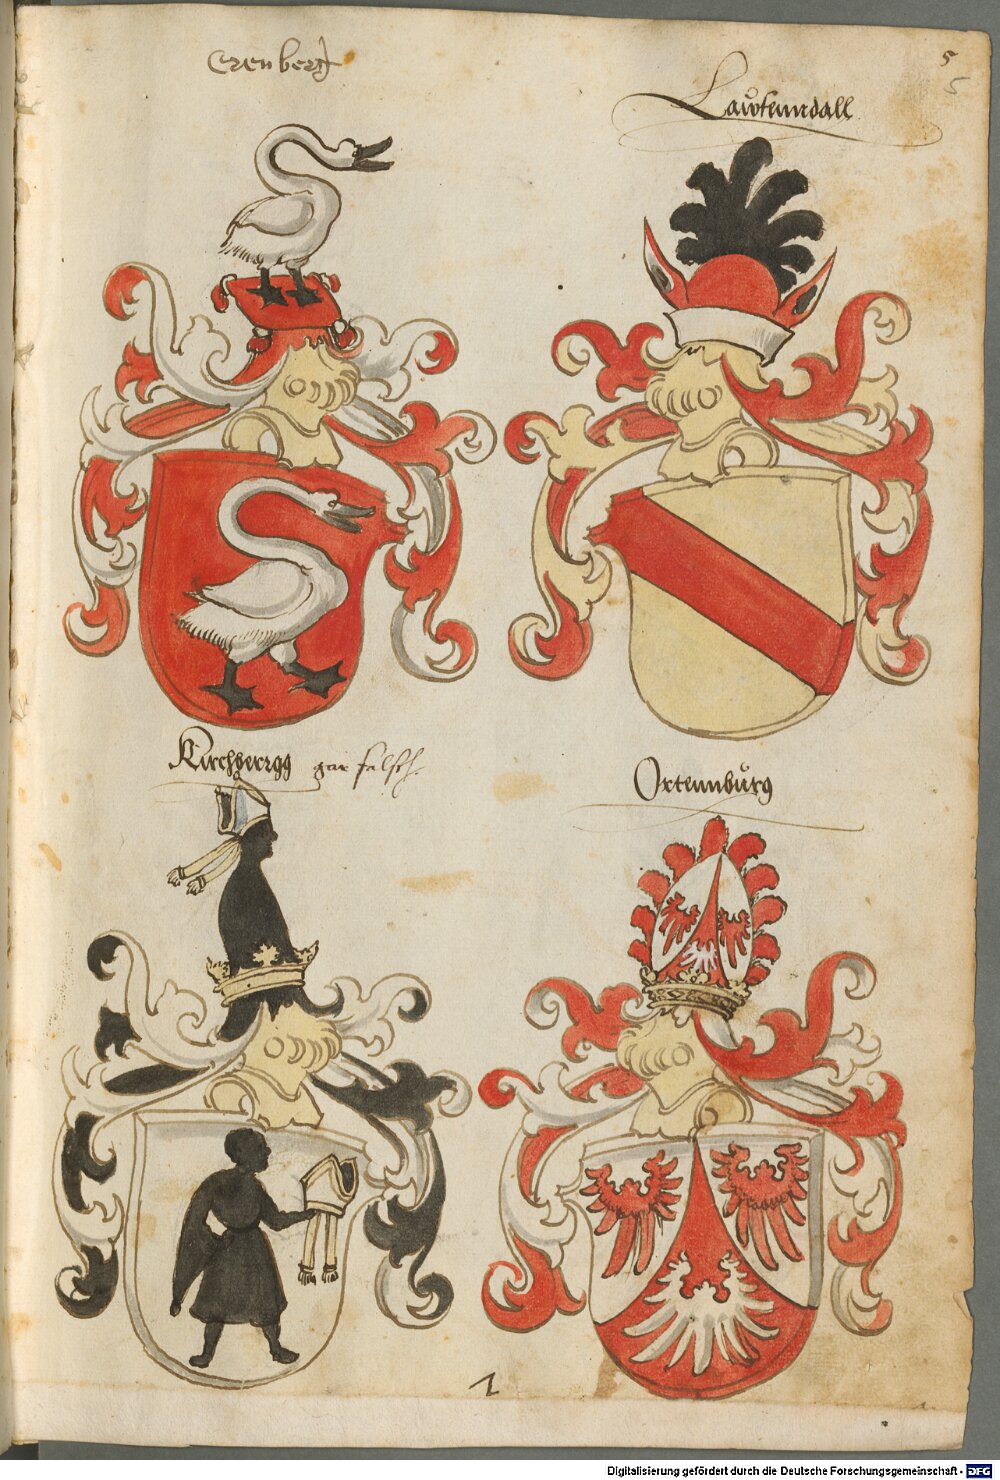 Erenberg
5
5
Lawfenndall
Kirchberigg gar falsch.
Ortennburg
1
Digitalisierung gefördert durch die Deutsche Forschungsgemeinschaft - DFG